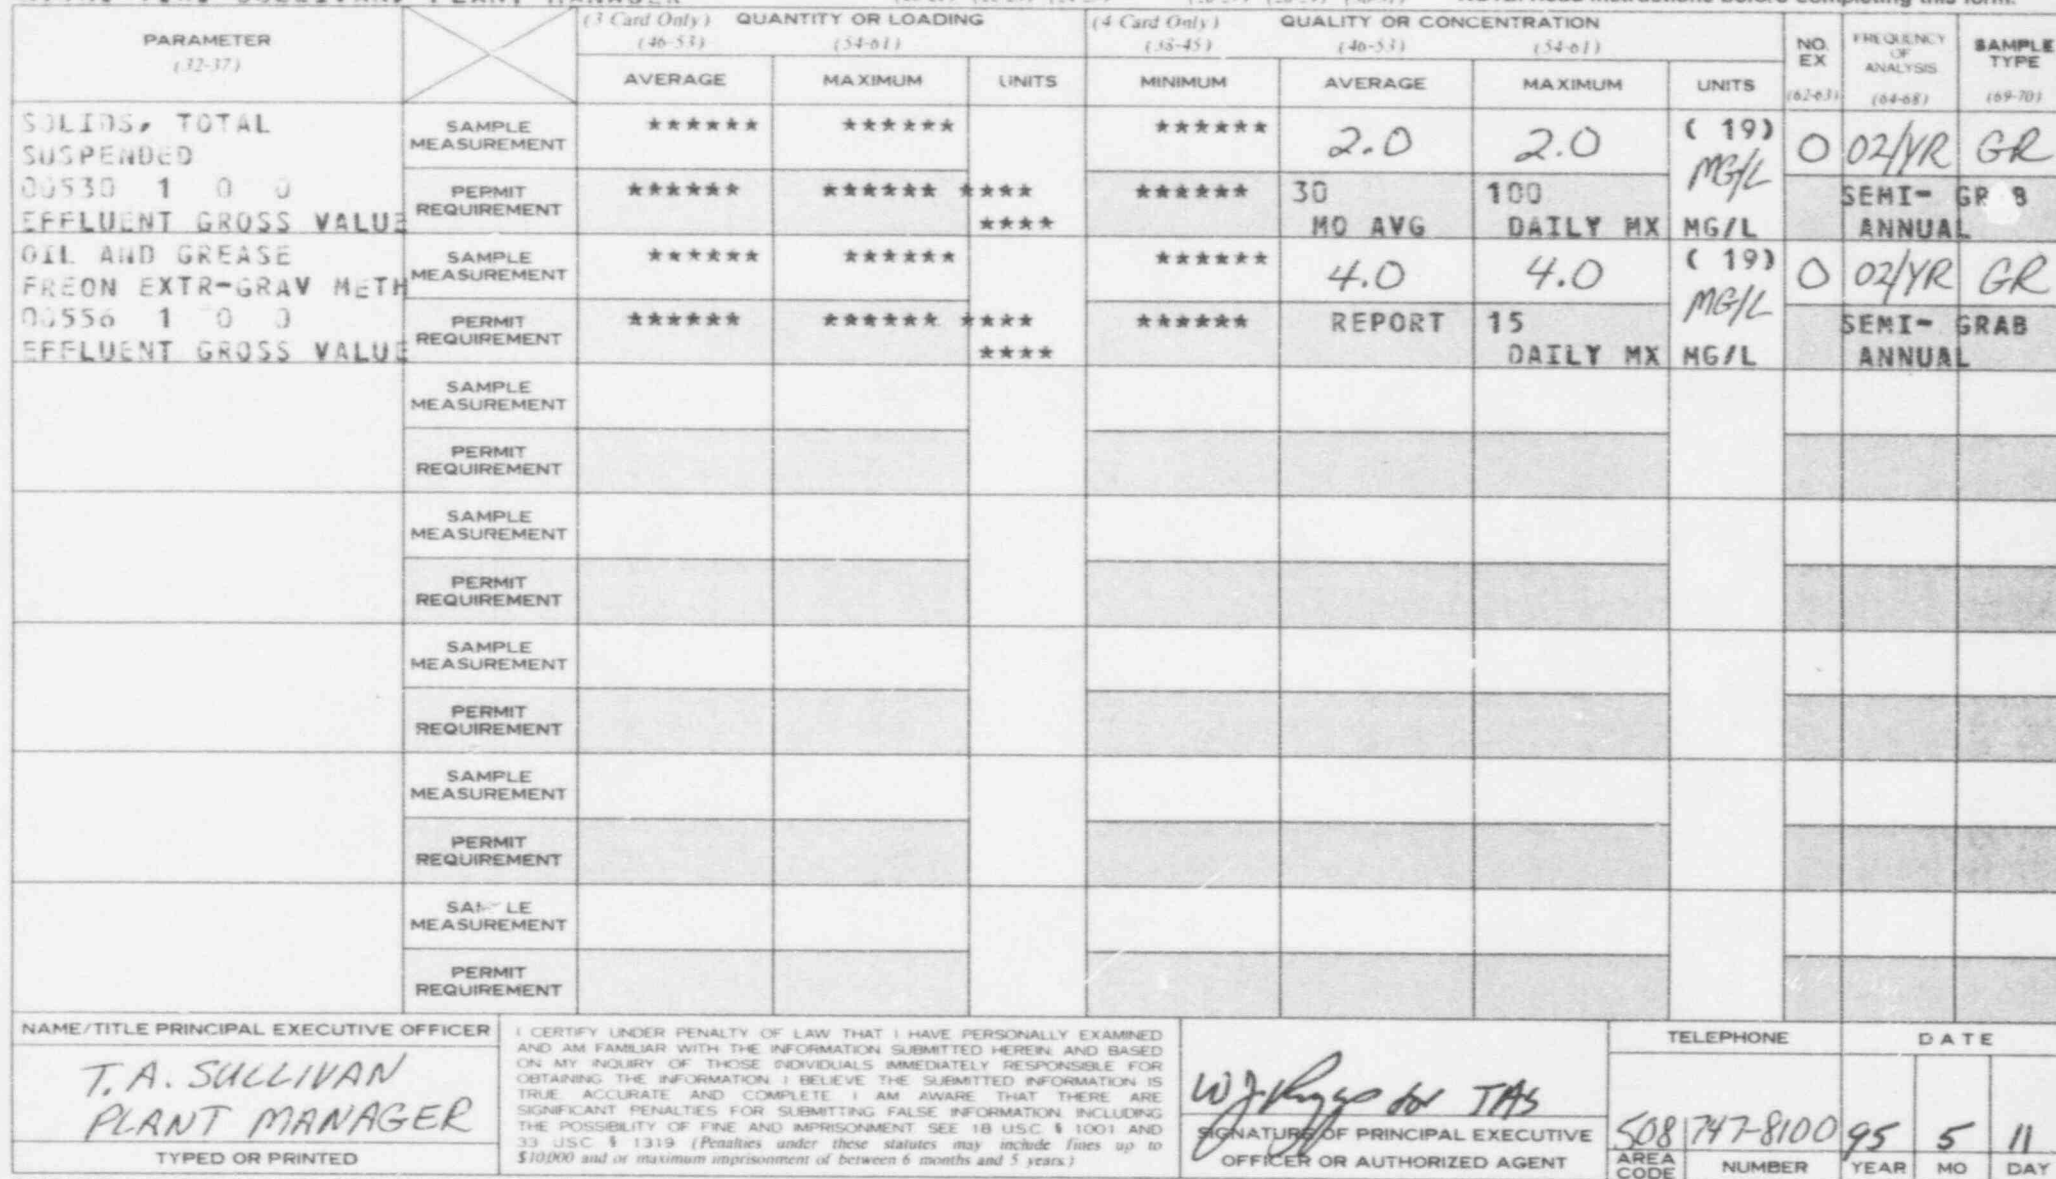 PLANT MANAGER
NOTE: Read instructions before completing this form.
PARAMETER
(32-37)
(3 Card Only) QUANTITY OR LOADING
(46-53) (54-61)
(4 Card Only) QUALITY OR CONCENTRATION
(38-45) (46-53) (54-61)
NO. EX
(62-63)
FREQUENCY OF ANALYSIS
(64-68)
SAMPLE TYPE
(69-70)
AVERAGE MAXIMUM UNITS MINIMUM AVERAGE MAXIMUM UNITS
SOLIDS, TOTAL
SUSPENDED
00530 1 0 0
EFFLUENT GROSS VALUE
SAMPLE MEASUREMENT ****** ****** ****** 2.0 2.0 ( 19) MG/L 0 02/YR GR
PERMIT REQUIREMENT ****** ****** **** ****** 30 100 SEMI- GR B
**** MO AVG DAILY MX MG/L ANNUAL
OIL AND GREASE
FREON EXTR-GRAV METH
00556 1 0 0
EFFLUENT GROSS VALUE
SAMPLE MEASUREMENT ****** ****** ****** 4.0 4.0 ( 19) MG/L 0 02/YR GR
PERMIT REQUIREMENT ****** ****** **** ****** REPORT 15 SEMI- GRAB
**** DAILY MX MG/L ANNUAL
SAMPLE MEASUREMENT
PERMIT REQUIREMENT
SAMPLE MEASUREMENT
PERMIT REQUIREMENT
SAMPLE MEASUREMENT
PERMIT REQUIREMENT
SAMPLE MEASUREMENT
PERMIT REQUIREMENT
SAM LE MEASUREMENT
PERMIT REQUIREMENT
NAME/TITLE PRINCIPAL EXECUTIVE OFFICER
T.A. SULLIVAN
PLANT MANAGER
TYPED OR PRINTED
I CERTIFY UNDER PENALTY OF LAW THAT I HAVE PERSONALLY EXAMINED
AND AM FAMILIAR WITH THE INFORMATION SUBMITTED HEREIN; AND BASED
ON MY INQUIRY OF THOSE INDIVIDUALS IMMEDIATELY RESPONSIBLE FOR
OBTAINING THE INFORMATION I BELIEVE THE SUBMITTED INFORMATION IS
TRUE, ACCURATE AND COMPLETE I AM AWARE THAT THERE ARE
SIGNIFICANT PENALTIES FOR SUBMITTING FALSE INFORMATION, INCLUDING
THE POSSIBILITY OF FINE AND IMPRISONMENT SEE 18 USC § 1001 AND
33 USC § 1319 (Penalties under these statutes may include fines up to
$10,000 and or maximum imprisonment of between 6 months and 5 years.)
for TAS
SIGNATURE OF PRINCIPAL EXECUTIVE
OFFICER OR AUTHORIZED AGENT
TELEPHONE
508 747-8100
AREA CODE NUMBER
DATE
95 5 11
YEAR MO DAY